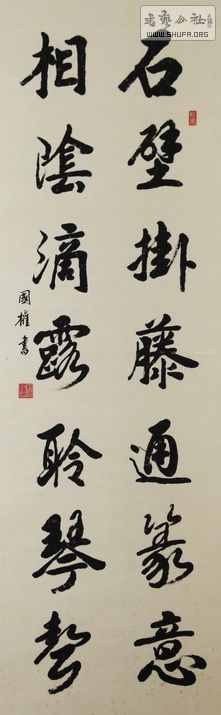 書藝公社
WWW.SHUFA.ORG
石壁掛藤通篆意
相陰滴露聆琴聲
國權書